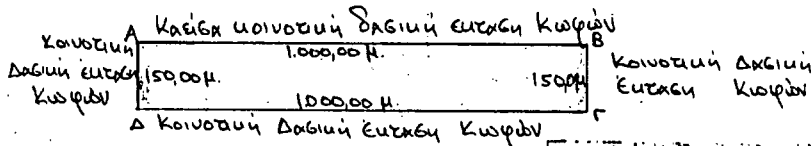 Α Καείσα κοινοτική δασική έκταση Κωφών Β
1.000,00 μ.
Κοινοτική
Δασική έκταση
Κωφών
150,00 μ.
150,0μ
Κοινοτική Δασική
Έκταση Κωφών
1000,00 μ.
Δ Κοινοτική Δασική Έκταση Κωφών Γ